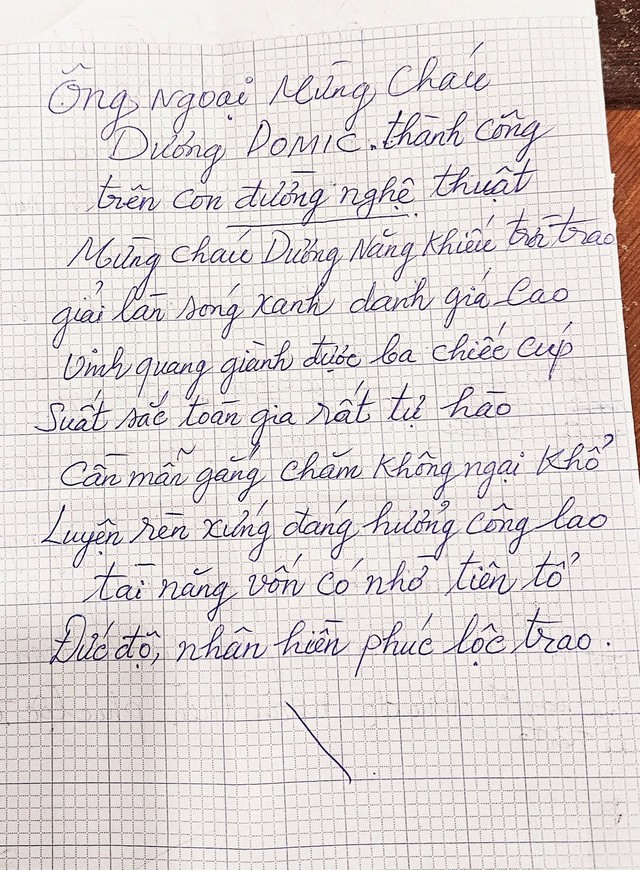 Ông Ngoại Mừng Cháu
Dương DOMIC. thành công
trên con đường nghệ thuật
Mừng cháu Dương Năng khiếu trời trao
giải làn sóng xanh danh giá cao
Vinh quang giành được ba chiếc cúp
Suất sắc toàn gia rất tự hào
Cần mẫn gắng chăm không ngại khổ
Luyện rèn xứng đáng hưởng công lao
tài năng vốn có nhờ tiên tổ
Đức độ, nhân hiền phúc lộc trao.